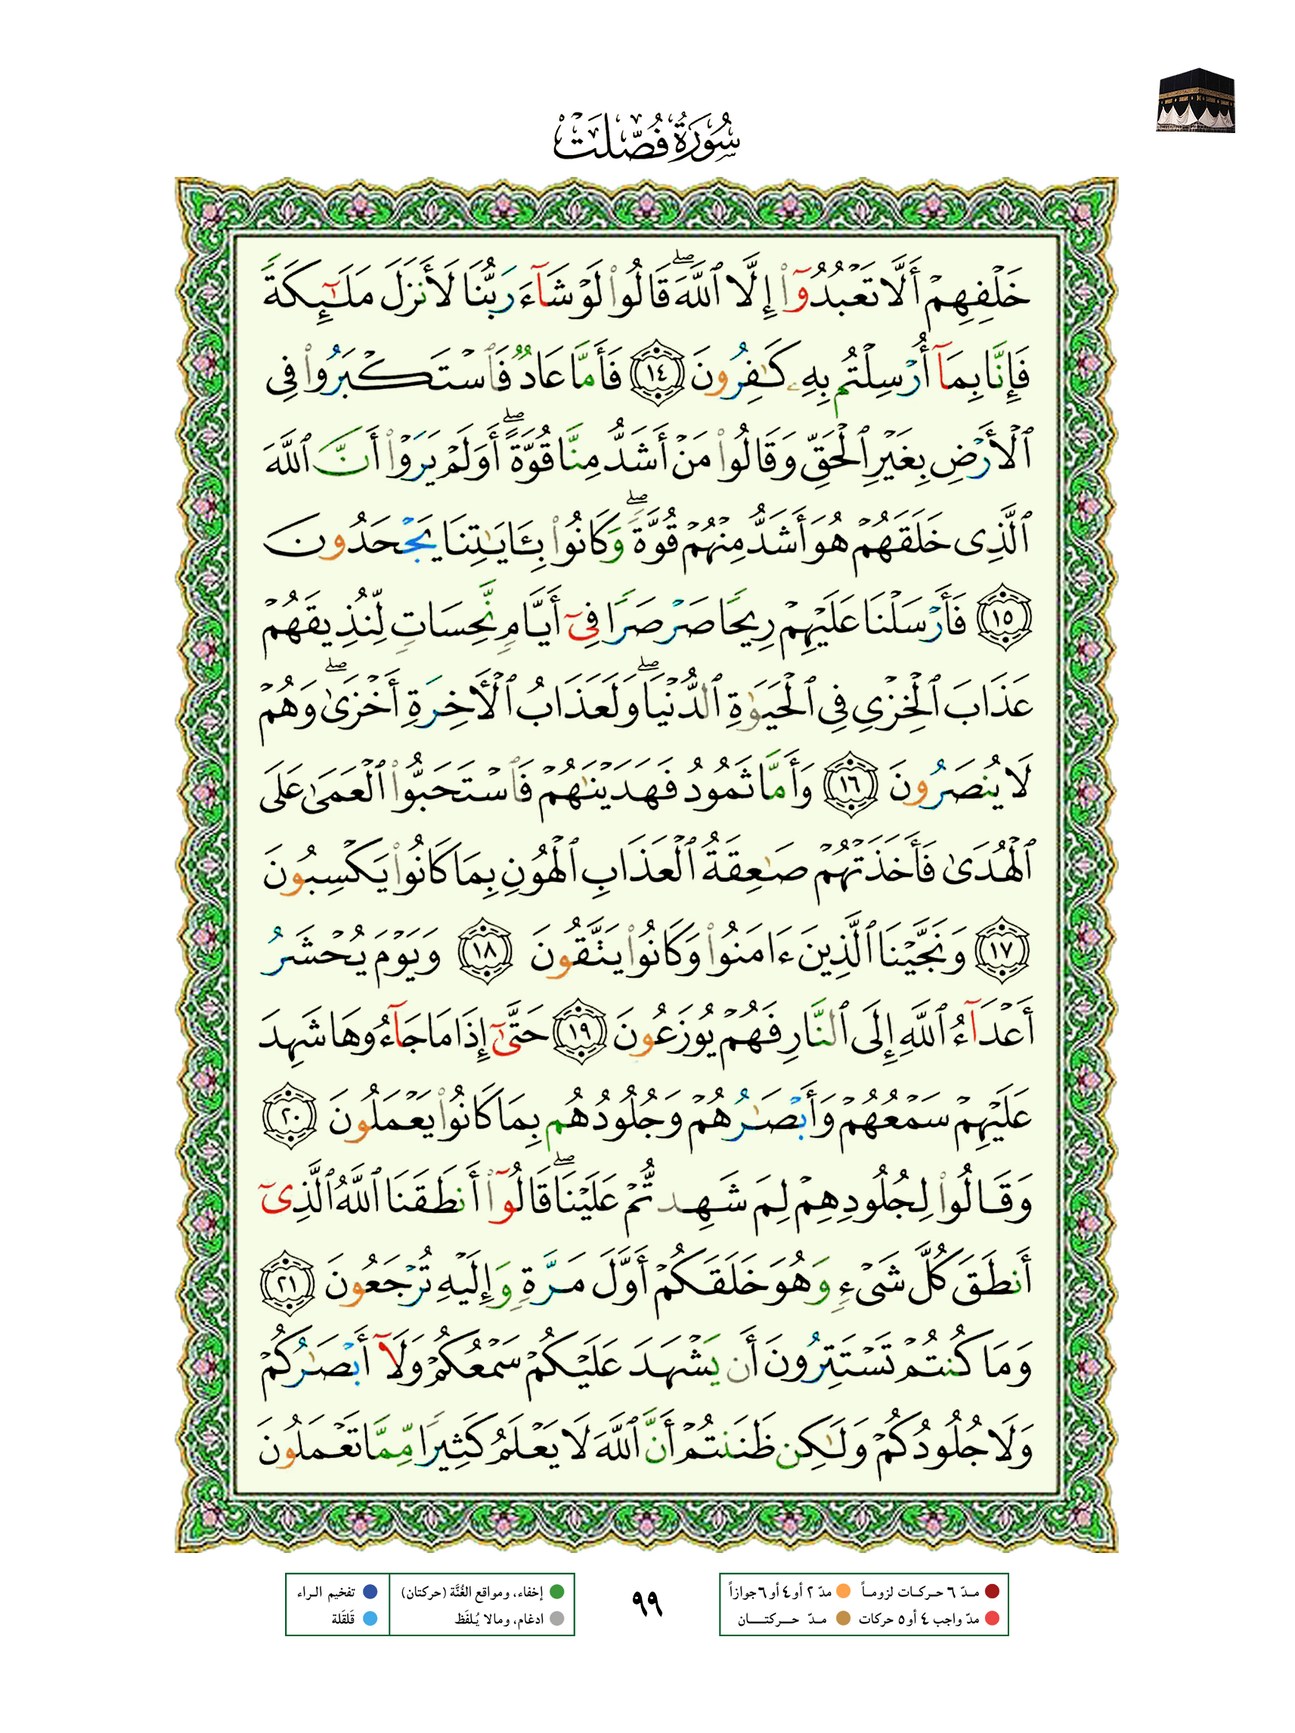 سُورَةُ فُصِّلَتْ
خَلْفِهِمْ أَلَّا تَعْبُدُوٓا۟ إِلَّا ٱللَّهَ ۖ قَالُوا۟ لَوْ شَآءَ رَبُّنَا لَأَنزَلَ مَلَـٰٓئِكَةً
فَإِنَّا بِمَآ أُرْسِلْتُم بِهِۦ كَـٰفِرُونَ ١٤ فَأَمَّا عَادٌ فَٱسْتَكْبَرُوا۟ فِى
ٱلْأَرْضِ بِغَيْرِ ٱلْحَقِّ وَقَالُوا۟ مَنْ أَشَدُّ مِنَّا قُوَّةً ۖ أَوَلَمْ يَرَوْا۟ أَنَّ ٱللَّهَ
ٱلَّذِى خَلَقَهُمْ هُوَ أَشَدُّ مِنْهُمْ قُوَّةً ۖ وَكَانُوا۟ بِـَٔايَـٰتِنَا يَجْحَدُونَ
١٥ فَأَرْسَلْنَا عَلَيْهِمْ رِيحًا صَرْصَرًا فِىٓ أَيَّامٍ نَّحِسَاتٍ لِّنُذِيقَهُمْ
عَذَابَ ٱلْخِزْىِ فِى ٱلْحَيَوٰةِ ٱلدُّنْيَا ۖ وَلَعَذَابُ ٱلْـَٔاخِرَةِ أَخْزَىٰ ۖ وَهُمْ
لَا يُنصَرُونَ ١٦ وَأَمَّا ثَمُودُ فَهَدَيْنَـٰهُمْ فَٱسْتَحَبُّوا۟ ٱلْعَمَىٰ عَلَى
ٱلْهُدَىٰ فَأَخَذَتْهُمْ صَـٰعِقَةُ ٱلْعَذَابِ ٱلْهُونِ بِمَا كَانُوا۟ يَكْسِبُونَ
١٧ وَنَجَّيْنَا ٱلَّذِينَ ءَامَنُوا۟ وَكَانُوا۟ يَتَّقُونَ ١٨ وَيَوْمَ يُحْشَرُ
أَعْدَآءُ ٱللَّهِ إِلَى ٱلنَّارِ فَهُمْ يُوزَعُونَ ١٩ حَتَّىٰٓ إِذَا مَا جَآءُوهَا شَهِدَ
عَلَيْهِمْ سَمْعُهُمْ وَأَبْصَـٰرُهُمْ وَجُلُودُهُم بِمَا كَانُوا۟ يَعْمَلُونَ ٢٠
وَقَالُوا۟ لِجُلُودِهِمْ لِمَ شَهِدتُّمْ عَلَيْنَا ۖ قَالُوٓا۟ أَنطَقَنَا ٱللَّهُ ٱلَّذِىٓ
أَنطَقَ كُلَّ شَىْءٍ وَهُوَ خَلَقَكُمْ أَوَّلَ مَرَّةٍ وَإِلَيْهِ تُرْجَعُونَ ٢١
وَمَا كُنتُمْ تَسْتَتِرُونَ أَن يَشْهَدَ عَلَيْكُمْ سَمْعُكُمْ وَلَآ أَبْصَـٰرُكُمْ
وَلَا جُلُودُكُمْ وَلَـٰكِن ظَنَنتُمْ أَنَّ ٱللَّهَ لَا يَعْلَمُ كَثِيرًا مِّمَّا تَعْمَلُونَ
مدّ ٦ حركات لزوماً مدّ ٢ أو ٤ أو ٦ جوازاً
مدّ واجب ٤ أو ٥ حركات مدّ حركتان
٩٩
إخفاء، ومواقع الغُنَّة (حركتان) تفخيم الراء
ادغام، ومالا يُلفَظ قَلقَلة